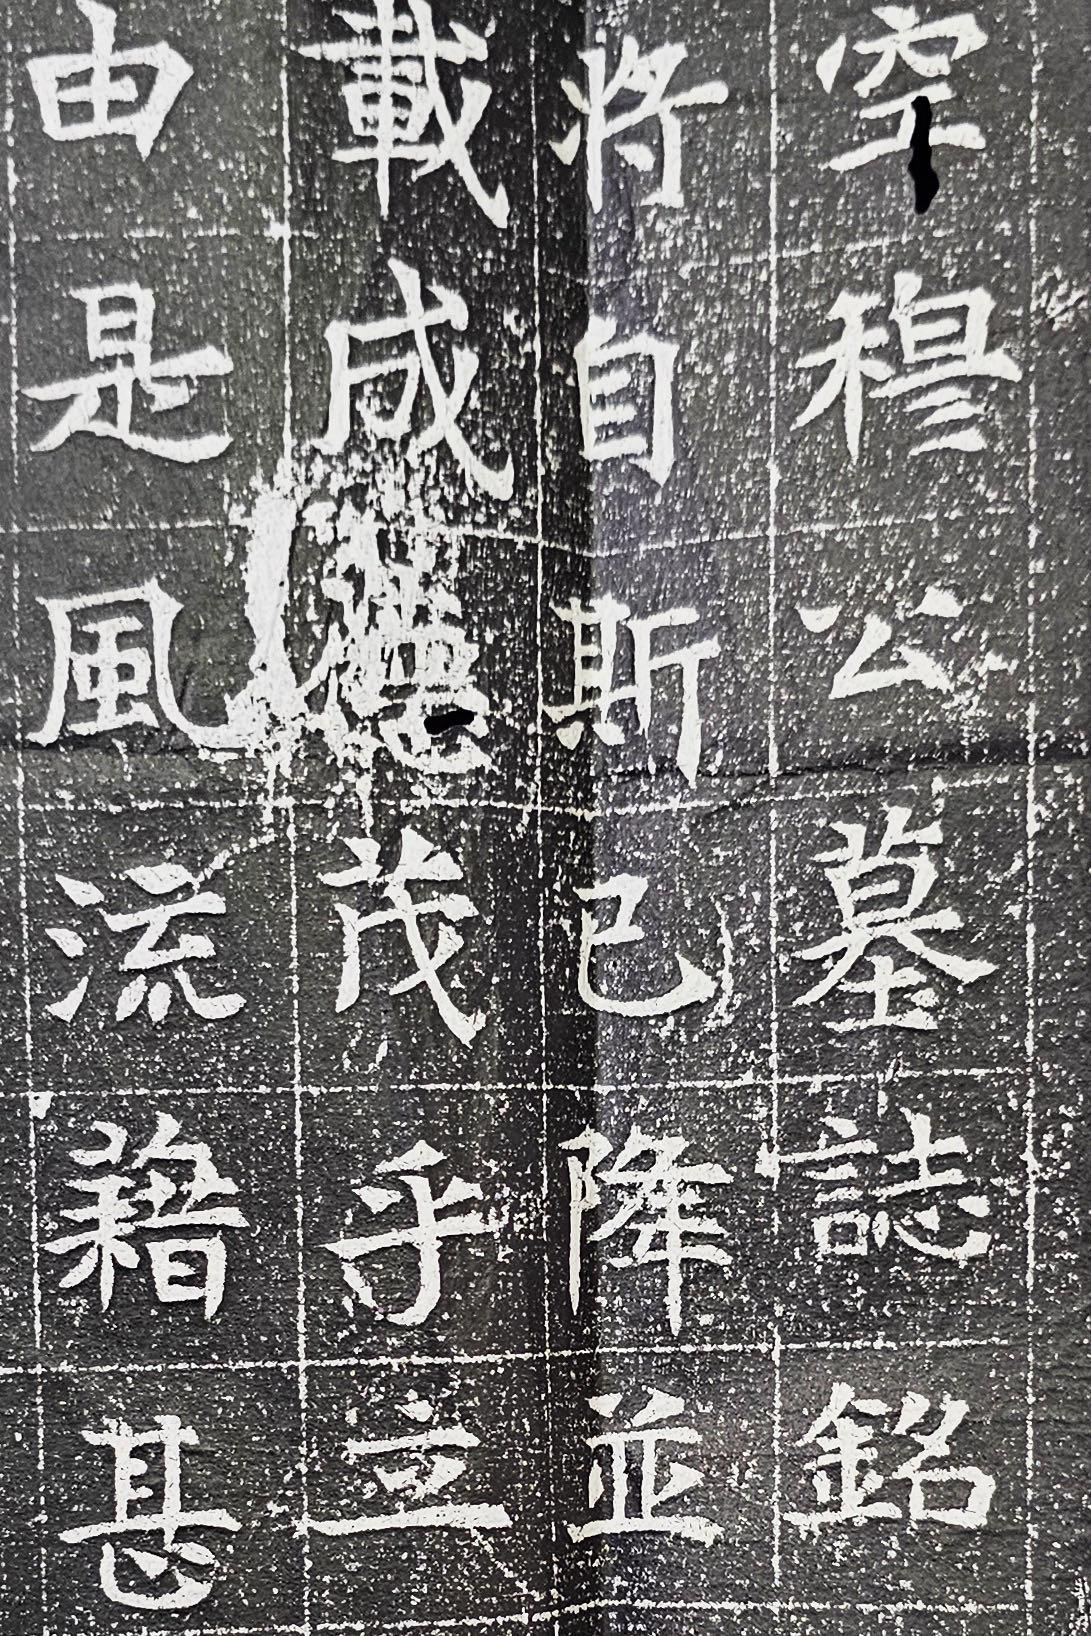 空穆公墓誌銘
將自斯已降並
載成德茂乎立
由是風流藉甚